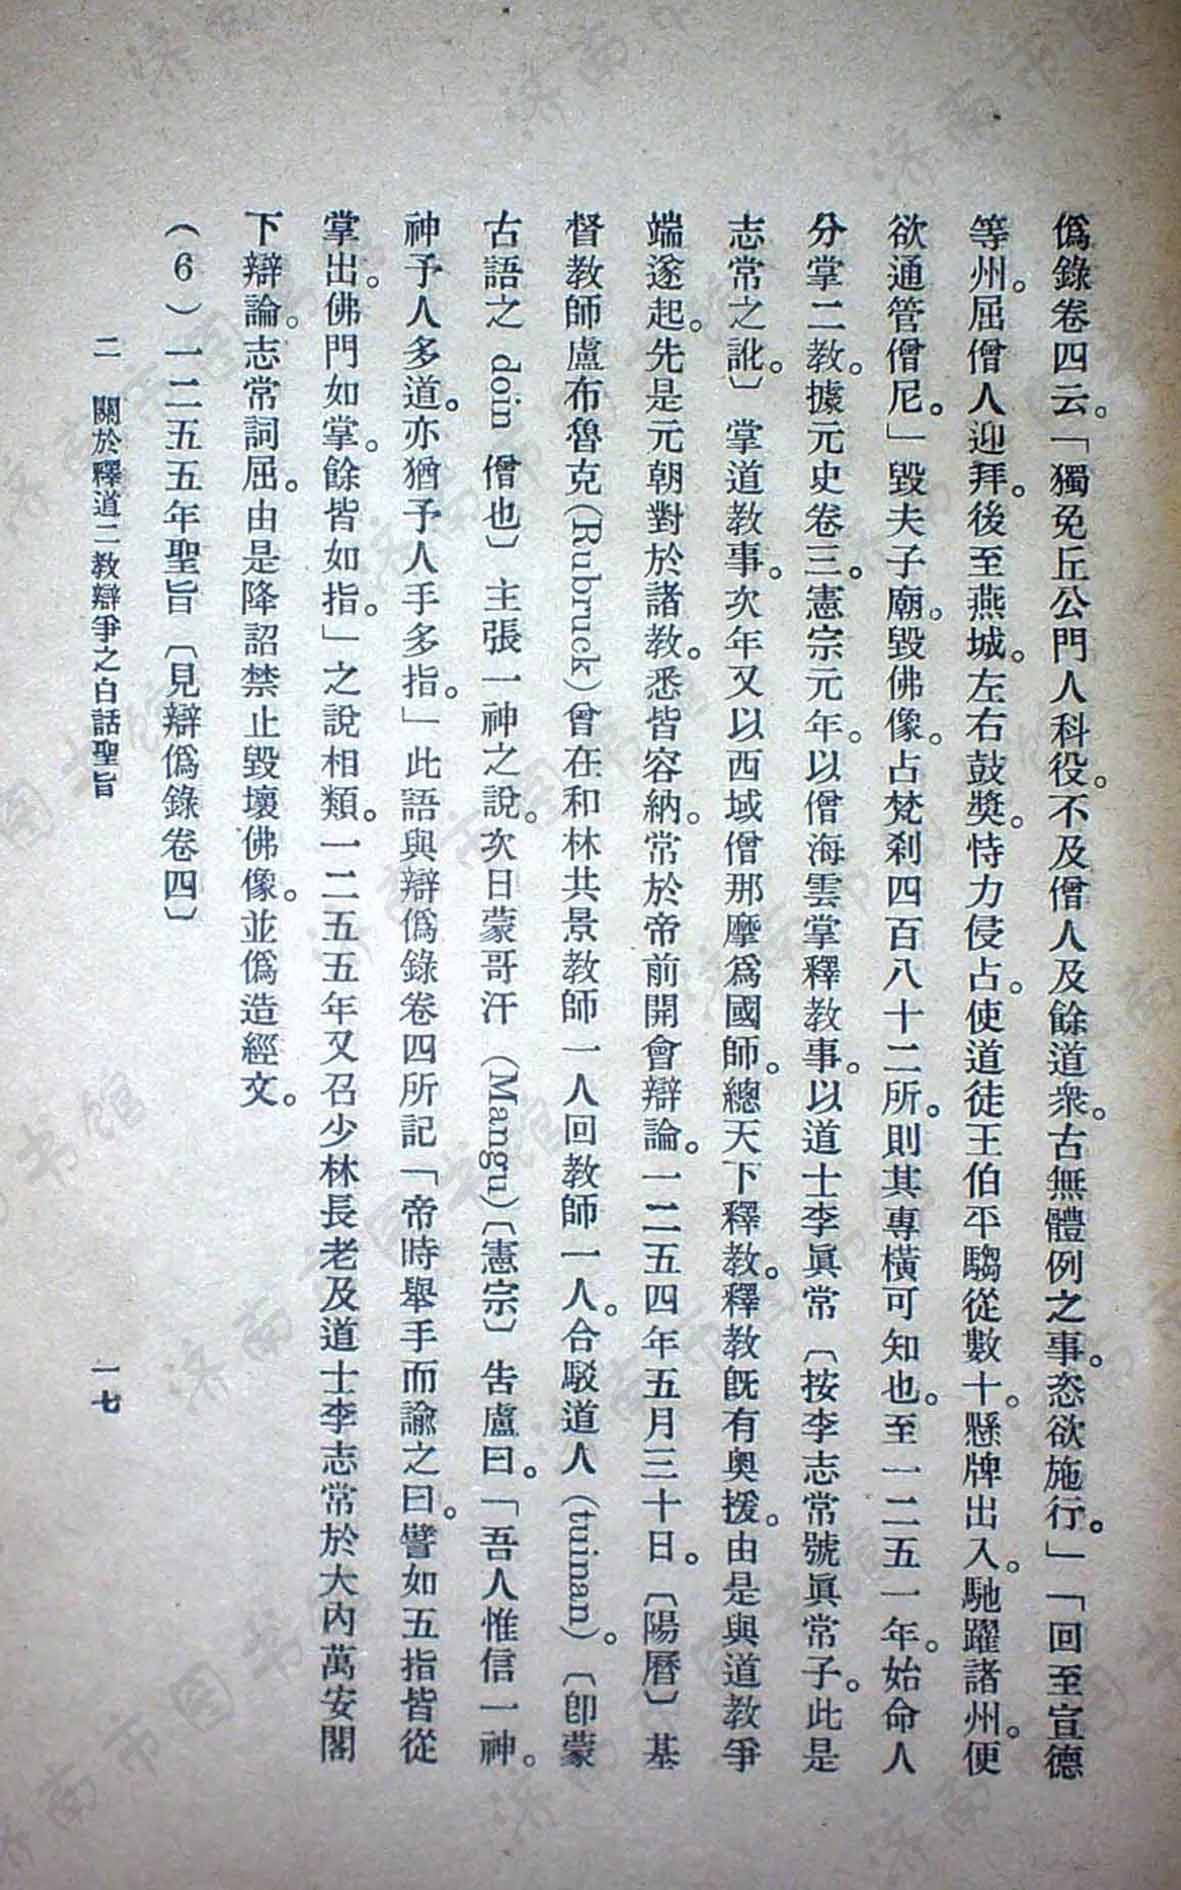 僞錄卷四云。「獨免丘公門人科役。不及僧人及餘道衆。古無體例之事。恣欲施行。」「回至宣德
等州。屈僧人迎拜。後至燕城。左右鼓奬。恃力侵占。使道徒王伯平騶從數十。懸牌出入。馳躍諸州。便
欲通管僧尼。」毀夫子廟。毀佛像。占梵刹四百八十二所。則其專橫可知也。至一二五一年。始命人
分掌二教。據元史卷三。憲宗元年。以僧海雲掌釋教事。以道士李眞常〔按李志常號眞常子。此是
志常之訛。〕掌道教事。次年又以西域僧那摩爲國師。總天下釋教。釋教旣有奧援。由是與道教爭
端遂起。先是元朝對於諸教。悉皆容納。常於帝前開會辯論。一二五四年五月三十日。〔陽曆〕基
督教師盧布魯克(Rubruck)曾在和林共景教師一人回教師一人。合駁道人(tuinan)。〔卽蒙
古語之 doin 僧也〕主張一神之說。次日蒙哥汗(Mangu)〔憲宗〕吿盧曰。「吾人惟信一神。
神予人多道。亦猶予人手多指。」此語與辯僞錄卷四所記「帝時舉手而諭之曰。譬如五指皆從
掌出。佛門如掌。餘皆如指。」之說相類。一二五五年又召少林長老及道士李志常於大內萬安閣
下辯論。志常詞屈。由是降詔禁止毀壞佛像。並僞造經文。
(6)一二五五年聖旨〔見辯僞錄卷四〕
二 關於釋道二教辯爭之白話聖旨 一七
济南市图书馆